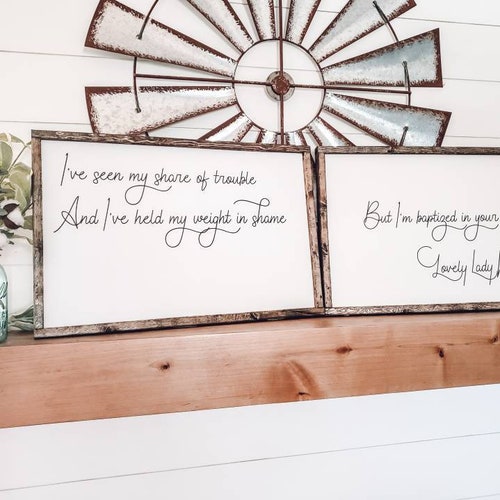 I've seen my share of trouble
And I've held my weight in shame
But I'm baptized in your
Lovely Lady